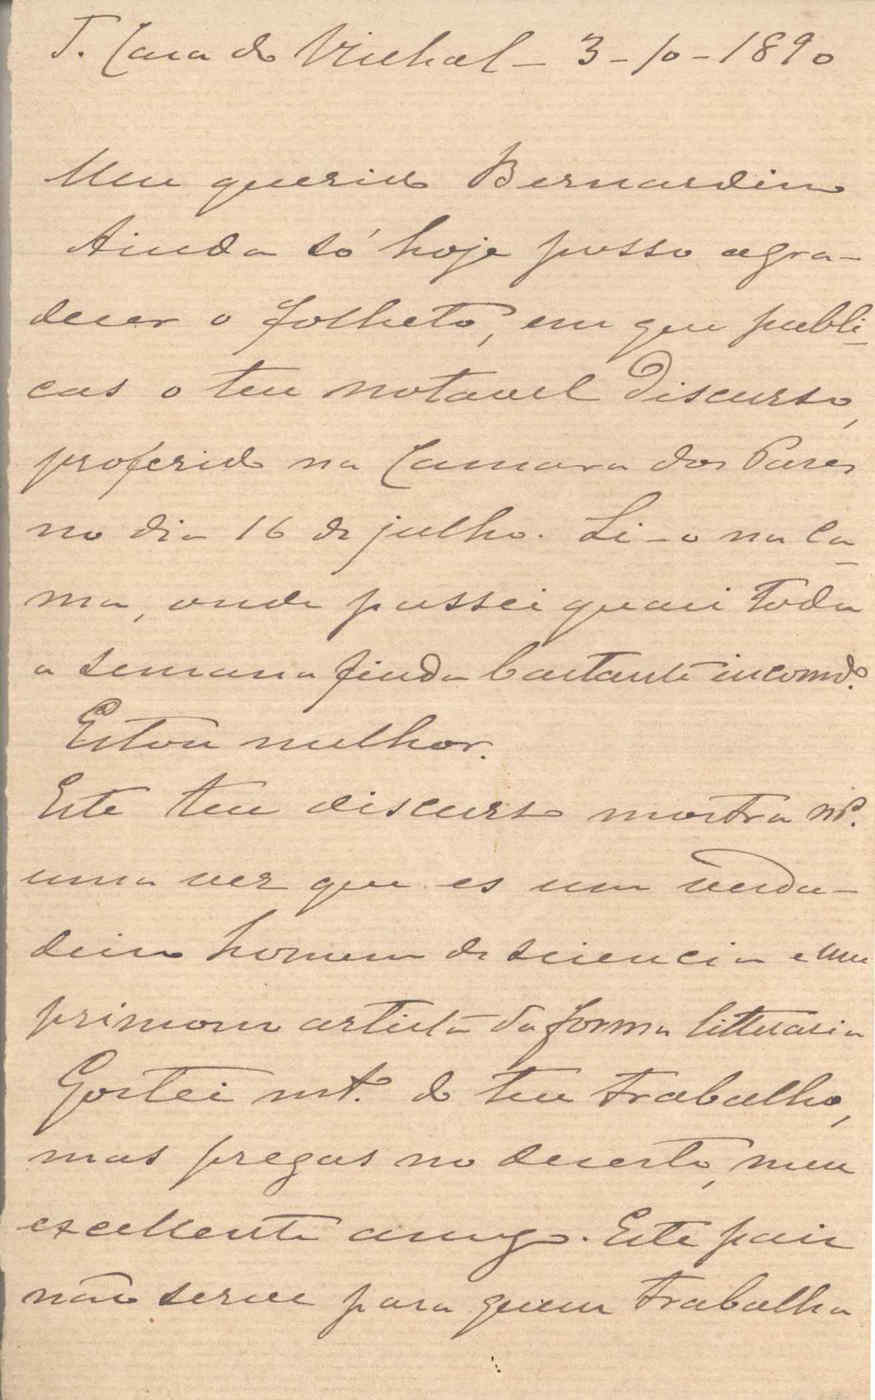 T. Casa do Vinhal – 3–10–1890
Meu querido Bernardino
Ainda só hoje posso agra–
decer o folheto, em que publi–
cas o teu notavel discurso,
proferido na Camara dos Pares
no dia 16 de julho. Li–o na ca–
ma, onde passei quasi toda
a semana finda bastante incomdo.
Estou melhor.
Este teu discurso mostra
uma vez que es um verda–
deiro homem de sciencia e um
primoroso artista da forma litteraria
Gostei mto. do teu trabalho,
mas pregas no deserto, meu
excellente amigo. Este paiz
não serve para quem trabalha